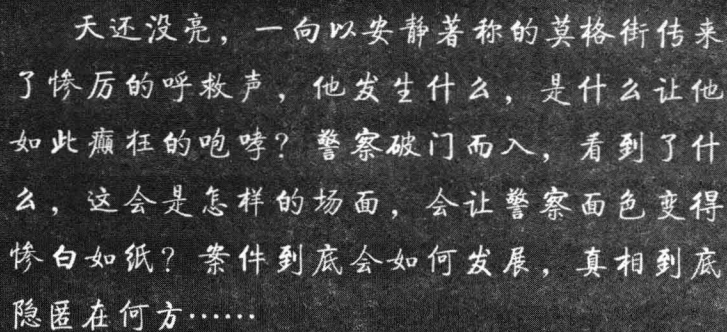 天还没亮，一向以安静著称的莫格街传来
了惨厉的呼救声，他发生什么，是什么让他
如此癫狂的咆哮？警察破门而入，看到了什
么，这会是怎样的场面，会让警察面色变得
惨白如纸？案件到底会如何发展，真相到底
隐匿在何方……